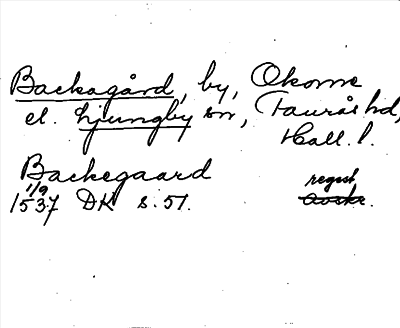 Backagård, by, Okome
el. Ljungby sn, Faurås hd,
Hall. l.
Backegaard
1/9 regest
1537 DK s. 57. avskr.